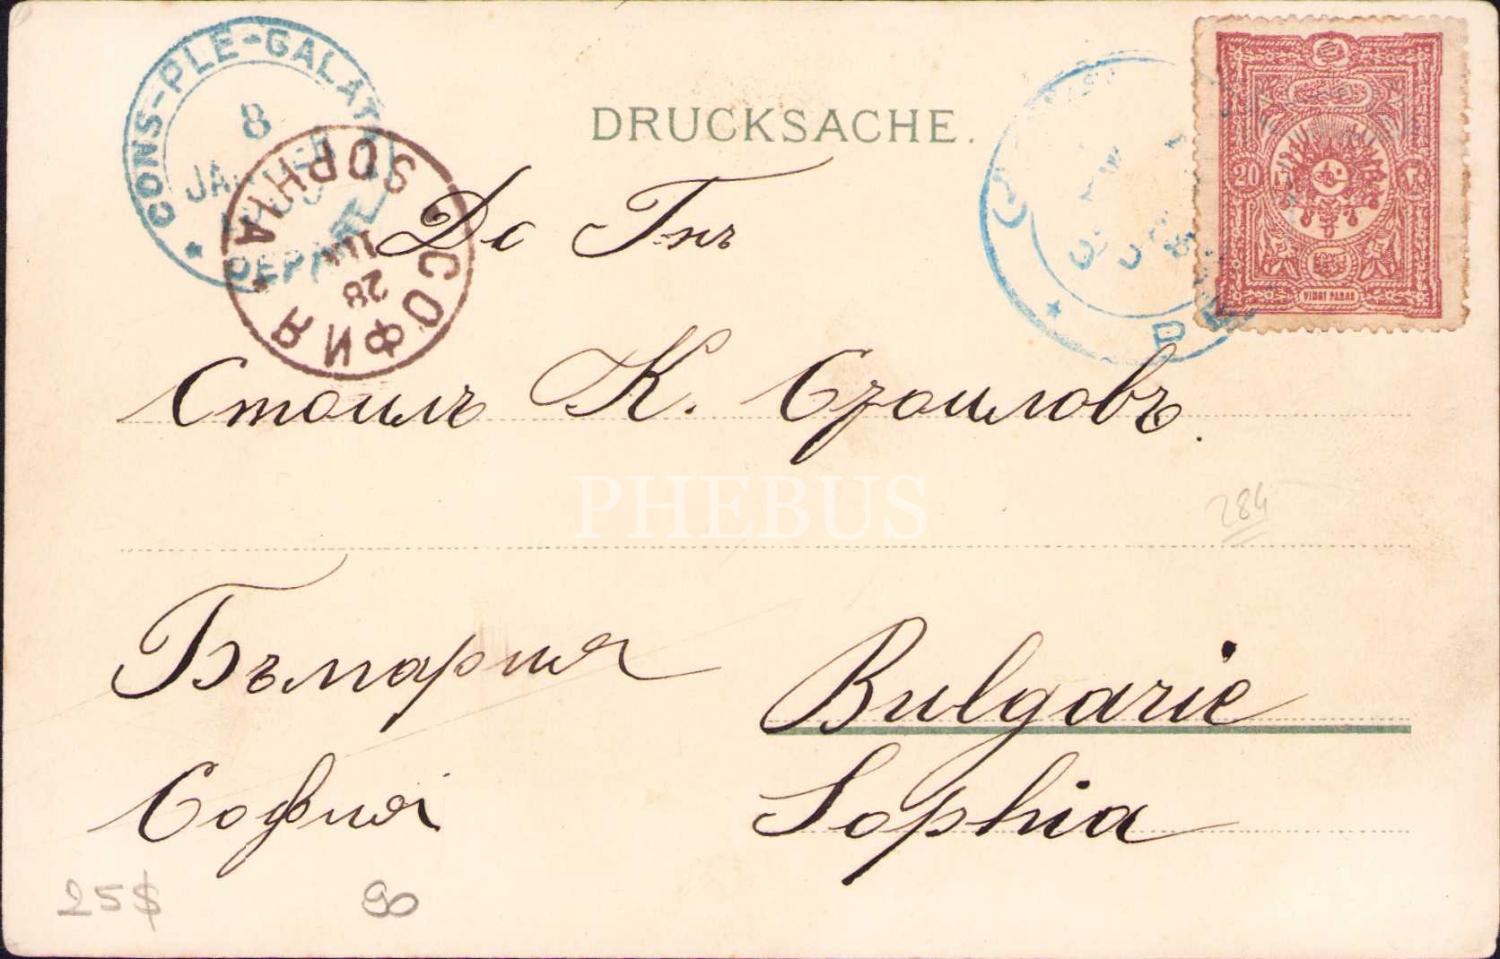 CONS-PLE-GALATA
8
DEPART
DRUCKSACHE.
20
VINGT PARAS
SOPHIA
СОФИЯ
28
До Гнъ
Стоилъ К. Стоиловъ.
PHEBUS
284
България
Bulgarie
София
Sophia
25$
90